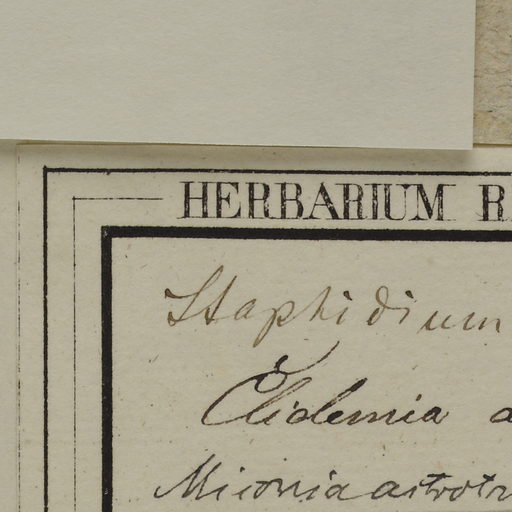 HERBARIUM R
Staphidium
Clidemia a
Miconia astrotr